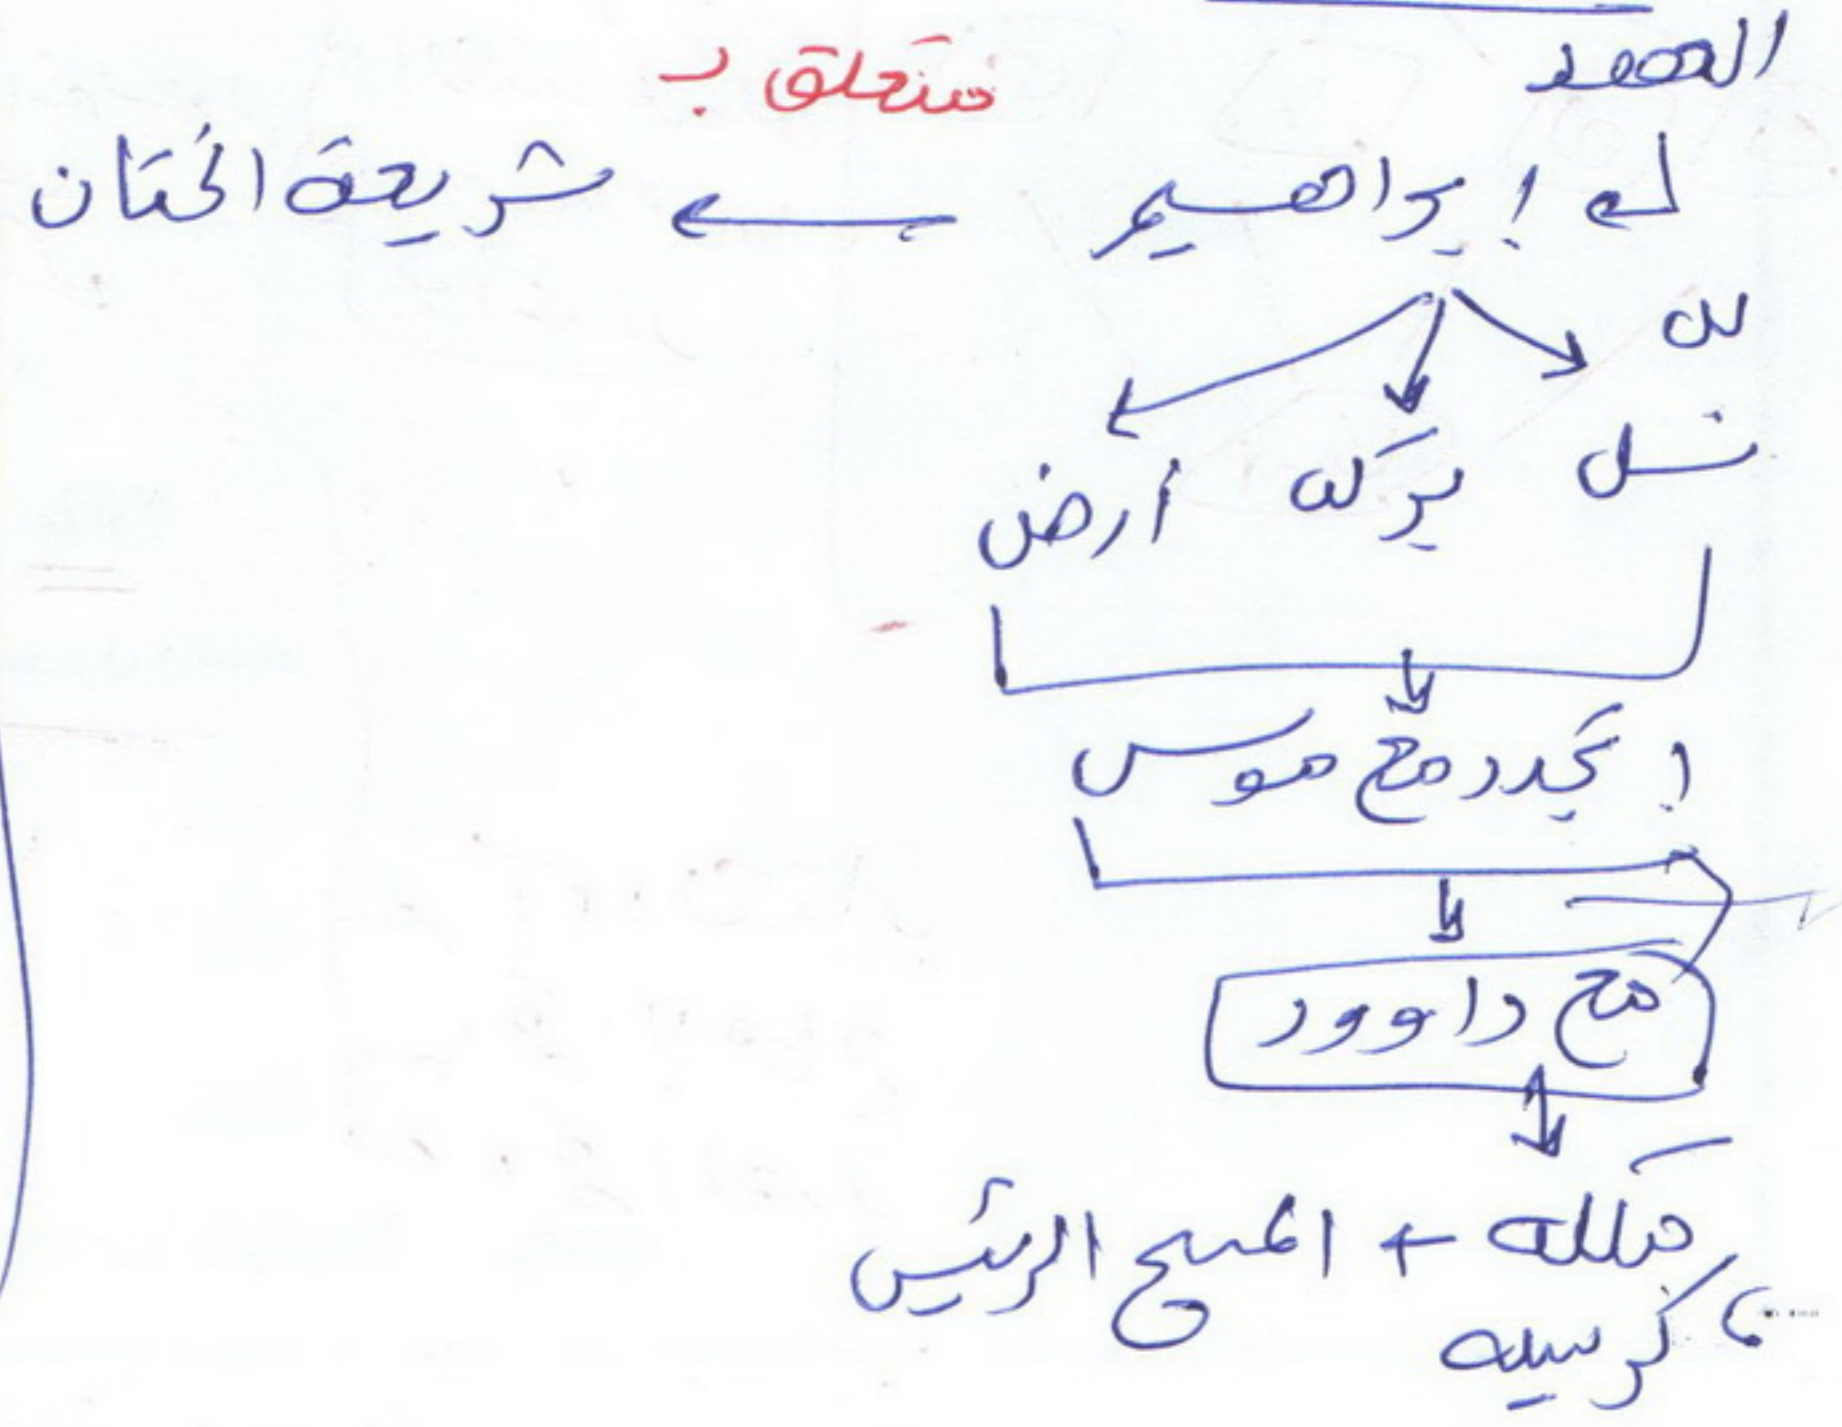 العهد
متعلق بـ
لـ إبراهيم ← شريعة الختان
له
نسل بركه أرض
إتجدد مع موسى
مع داوود
مملكه + المسيح الرئيس
كرسيه